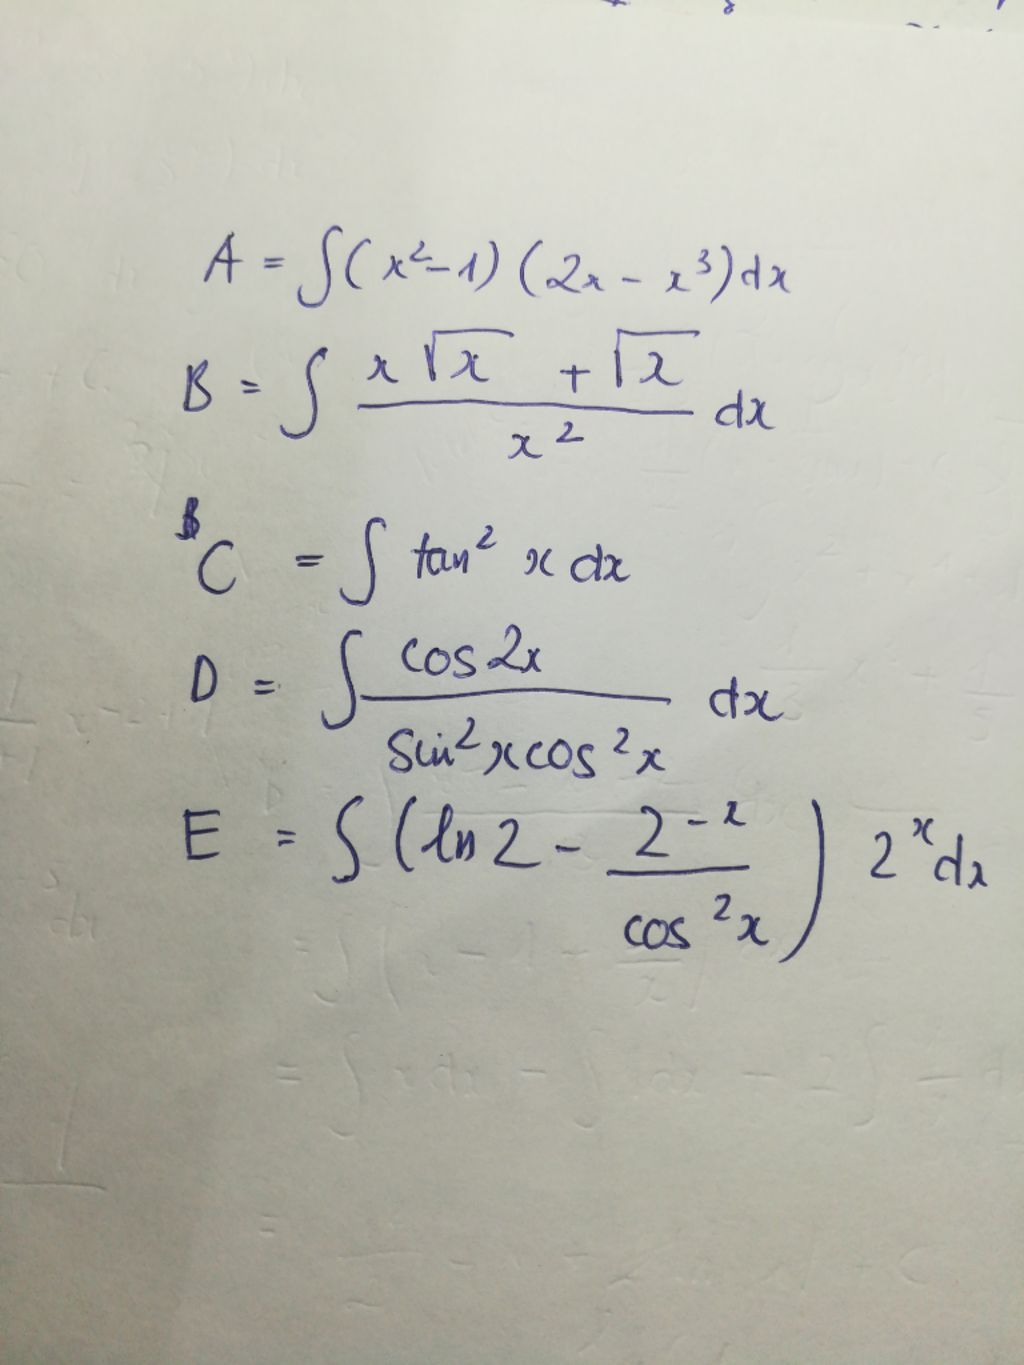 A = ∫(x²-1)(2x - x³)dx
B = ∫ (x√x + √x)/x² dx
C = ∫ tan² x dx
D = ∫ cos 2x/(sin²x cos²x) dx
E = ∫ (ln 2 - 2⁻ˣ/cos²x) 2ˣ dx